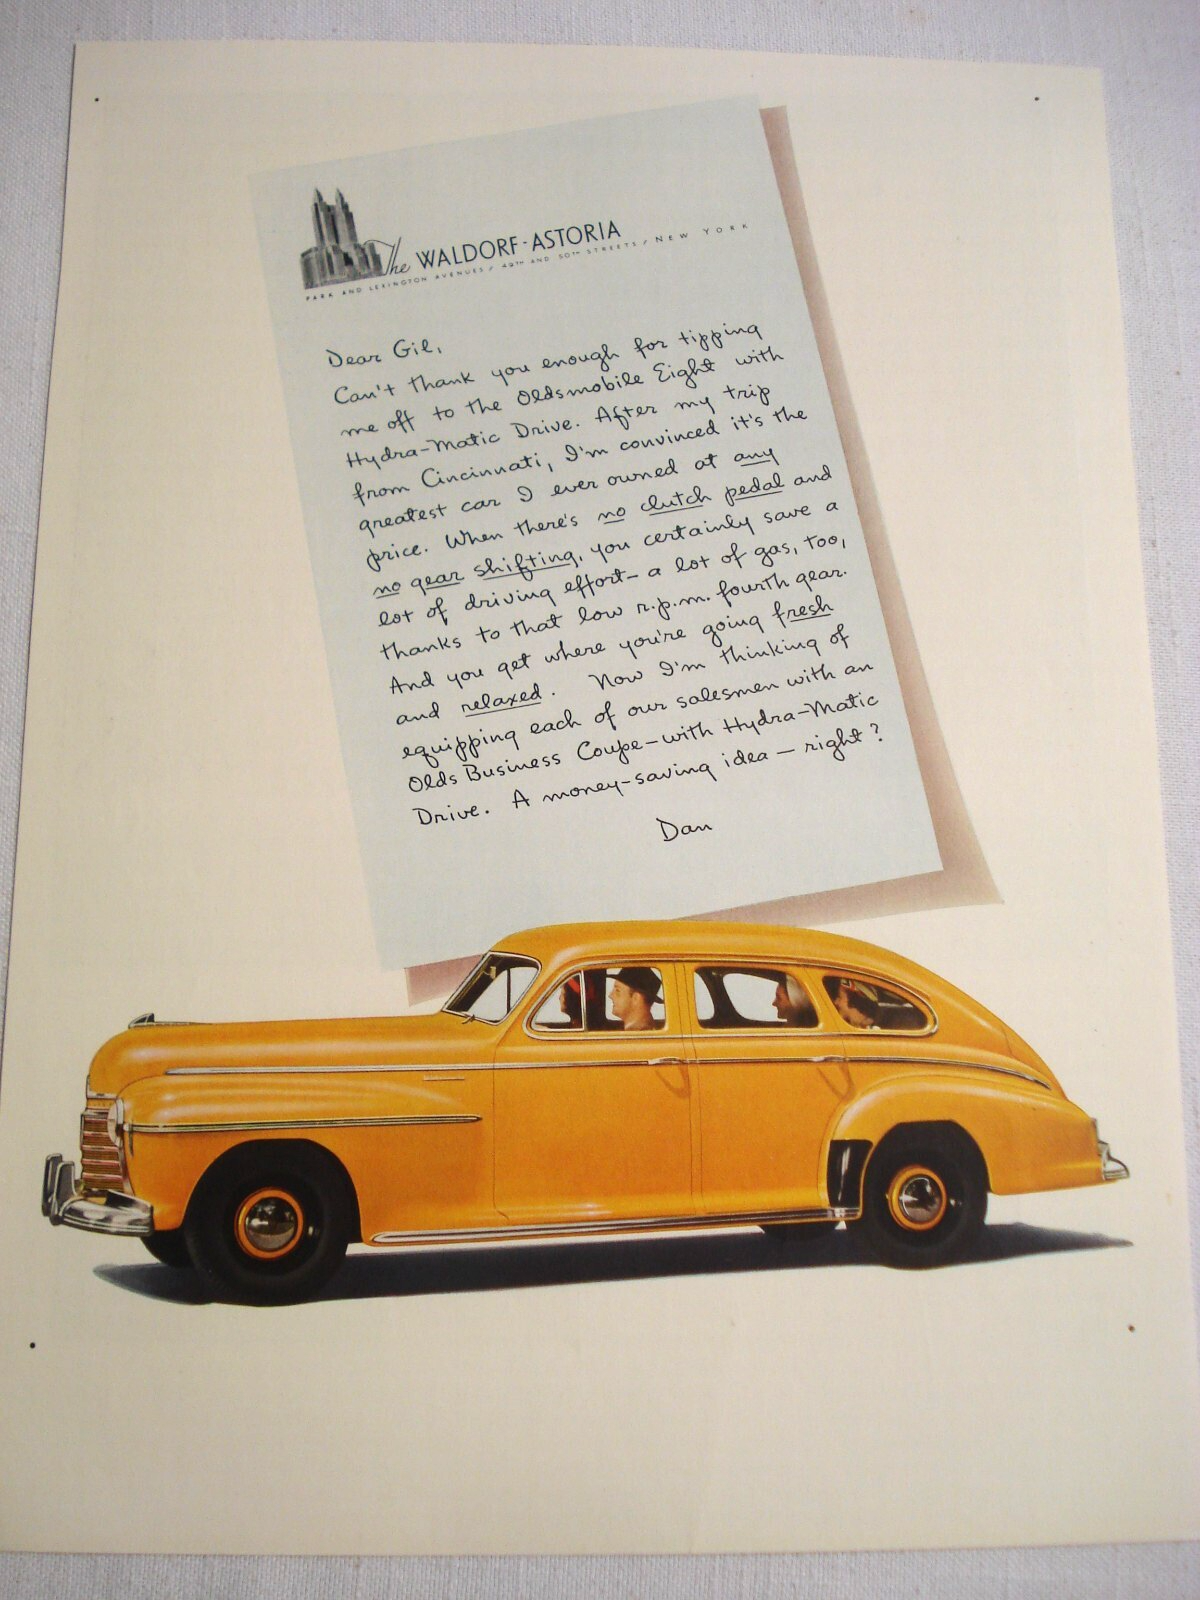 The WALDORF-ASTORIA
PARK AND LEXINGTON AVENUES / 49TH AND 50TH STREETS / NEW YORK
Dear Gil,
Can't thank you enough for tipping
me off to the Oldsmobile Eight with
Hydra-Matic Drive. After my trip
from Cincinnati, I'm convinced it's the
greatest car I ever owned at any
price. When there's no clutch pedal and
no gear shifting, you certainly save a
lot of driving effort- a lot of gas, too,
thanks to that low r.p.m. fourth gear.
And you get where you're going fresh
and relaxed. Now I'm thinking of
equipping each of our salesmen with an
Olds Business Coupe-with Hydra-Matic
Drive. A money-saving idea - right?
Dan